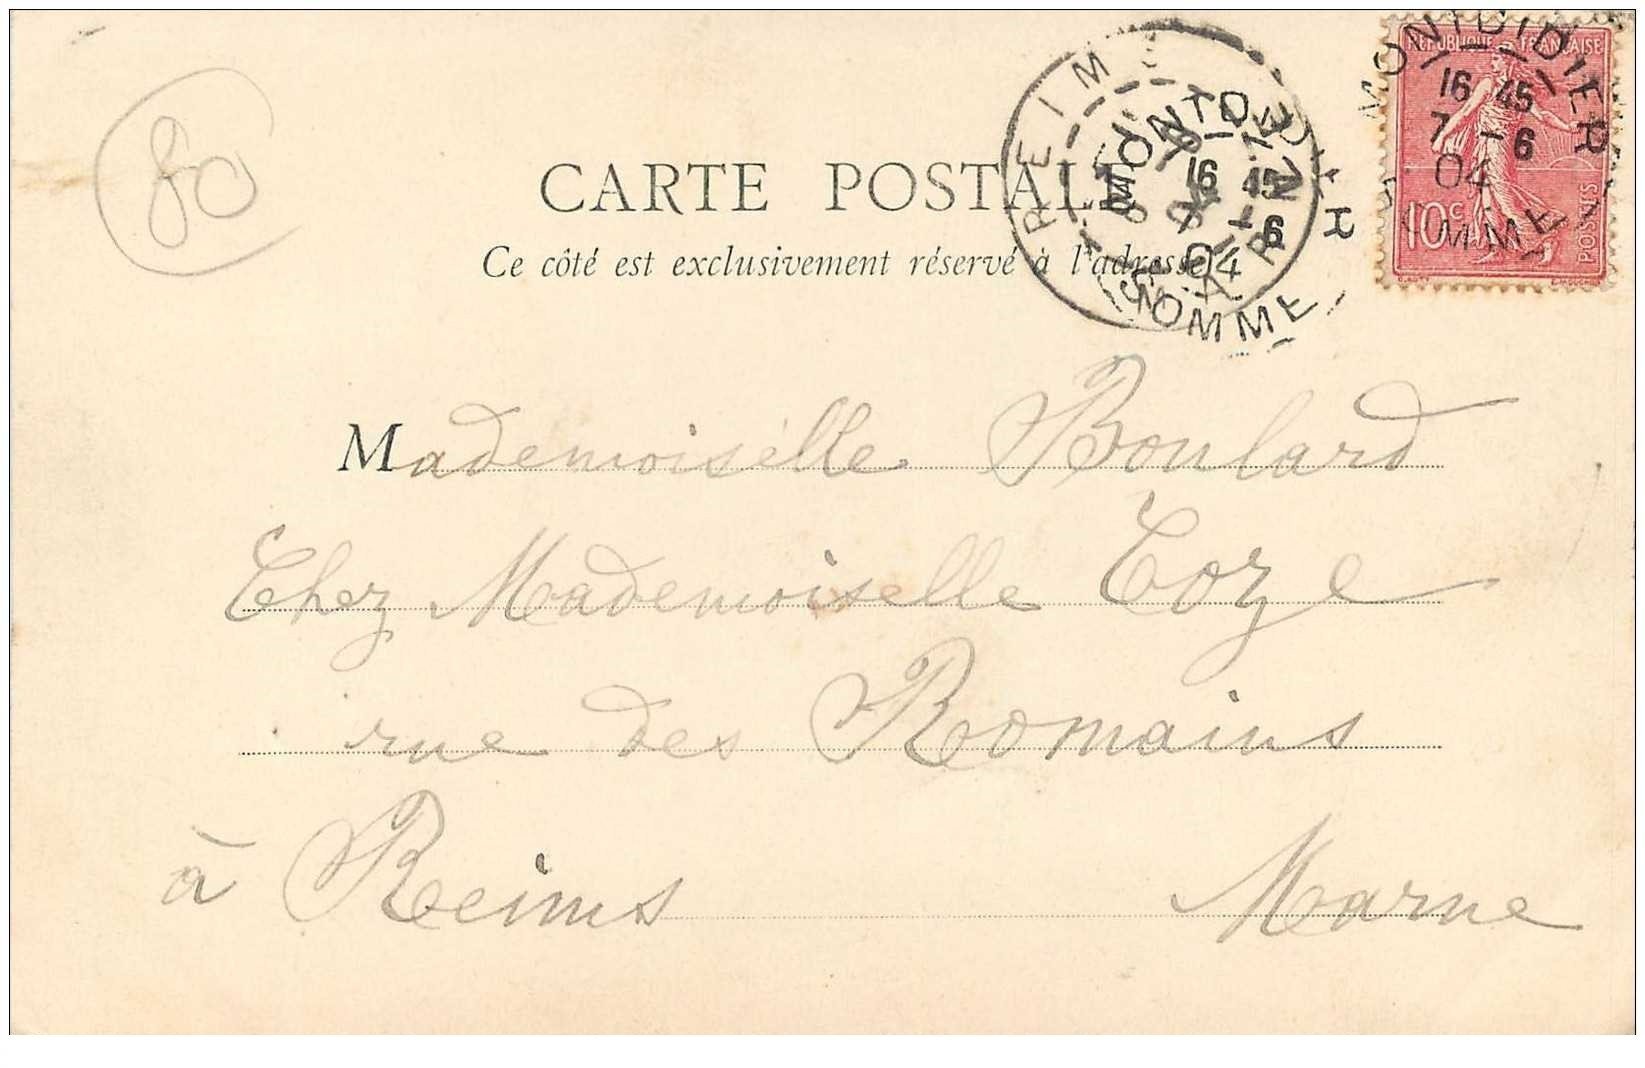 80
CARTE POSTALE
Ce côté est exclusivement réservé à l'adresse
REIMS
MARNE
MONTDIDIER
16 45
7 - 6
04
SOMME
REPUBLIQUE FRANÇAISE
10c
POSTES
MONTDIDIER
16 45
7 - 6
04
SOMME
Mademoiselle Boulard
Chez Mademoiselle Coze
rue des Romains
à Reims Marne